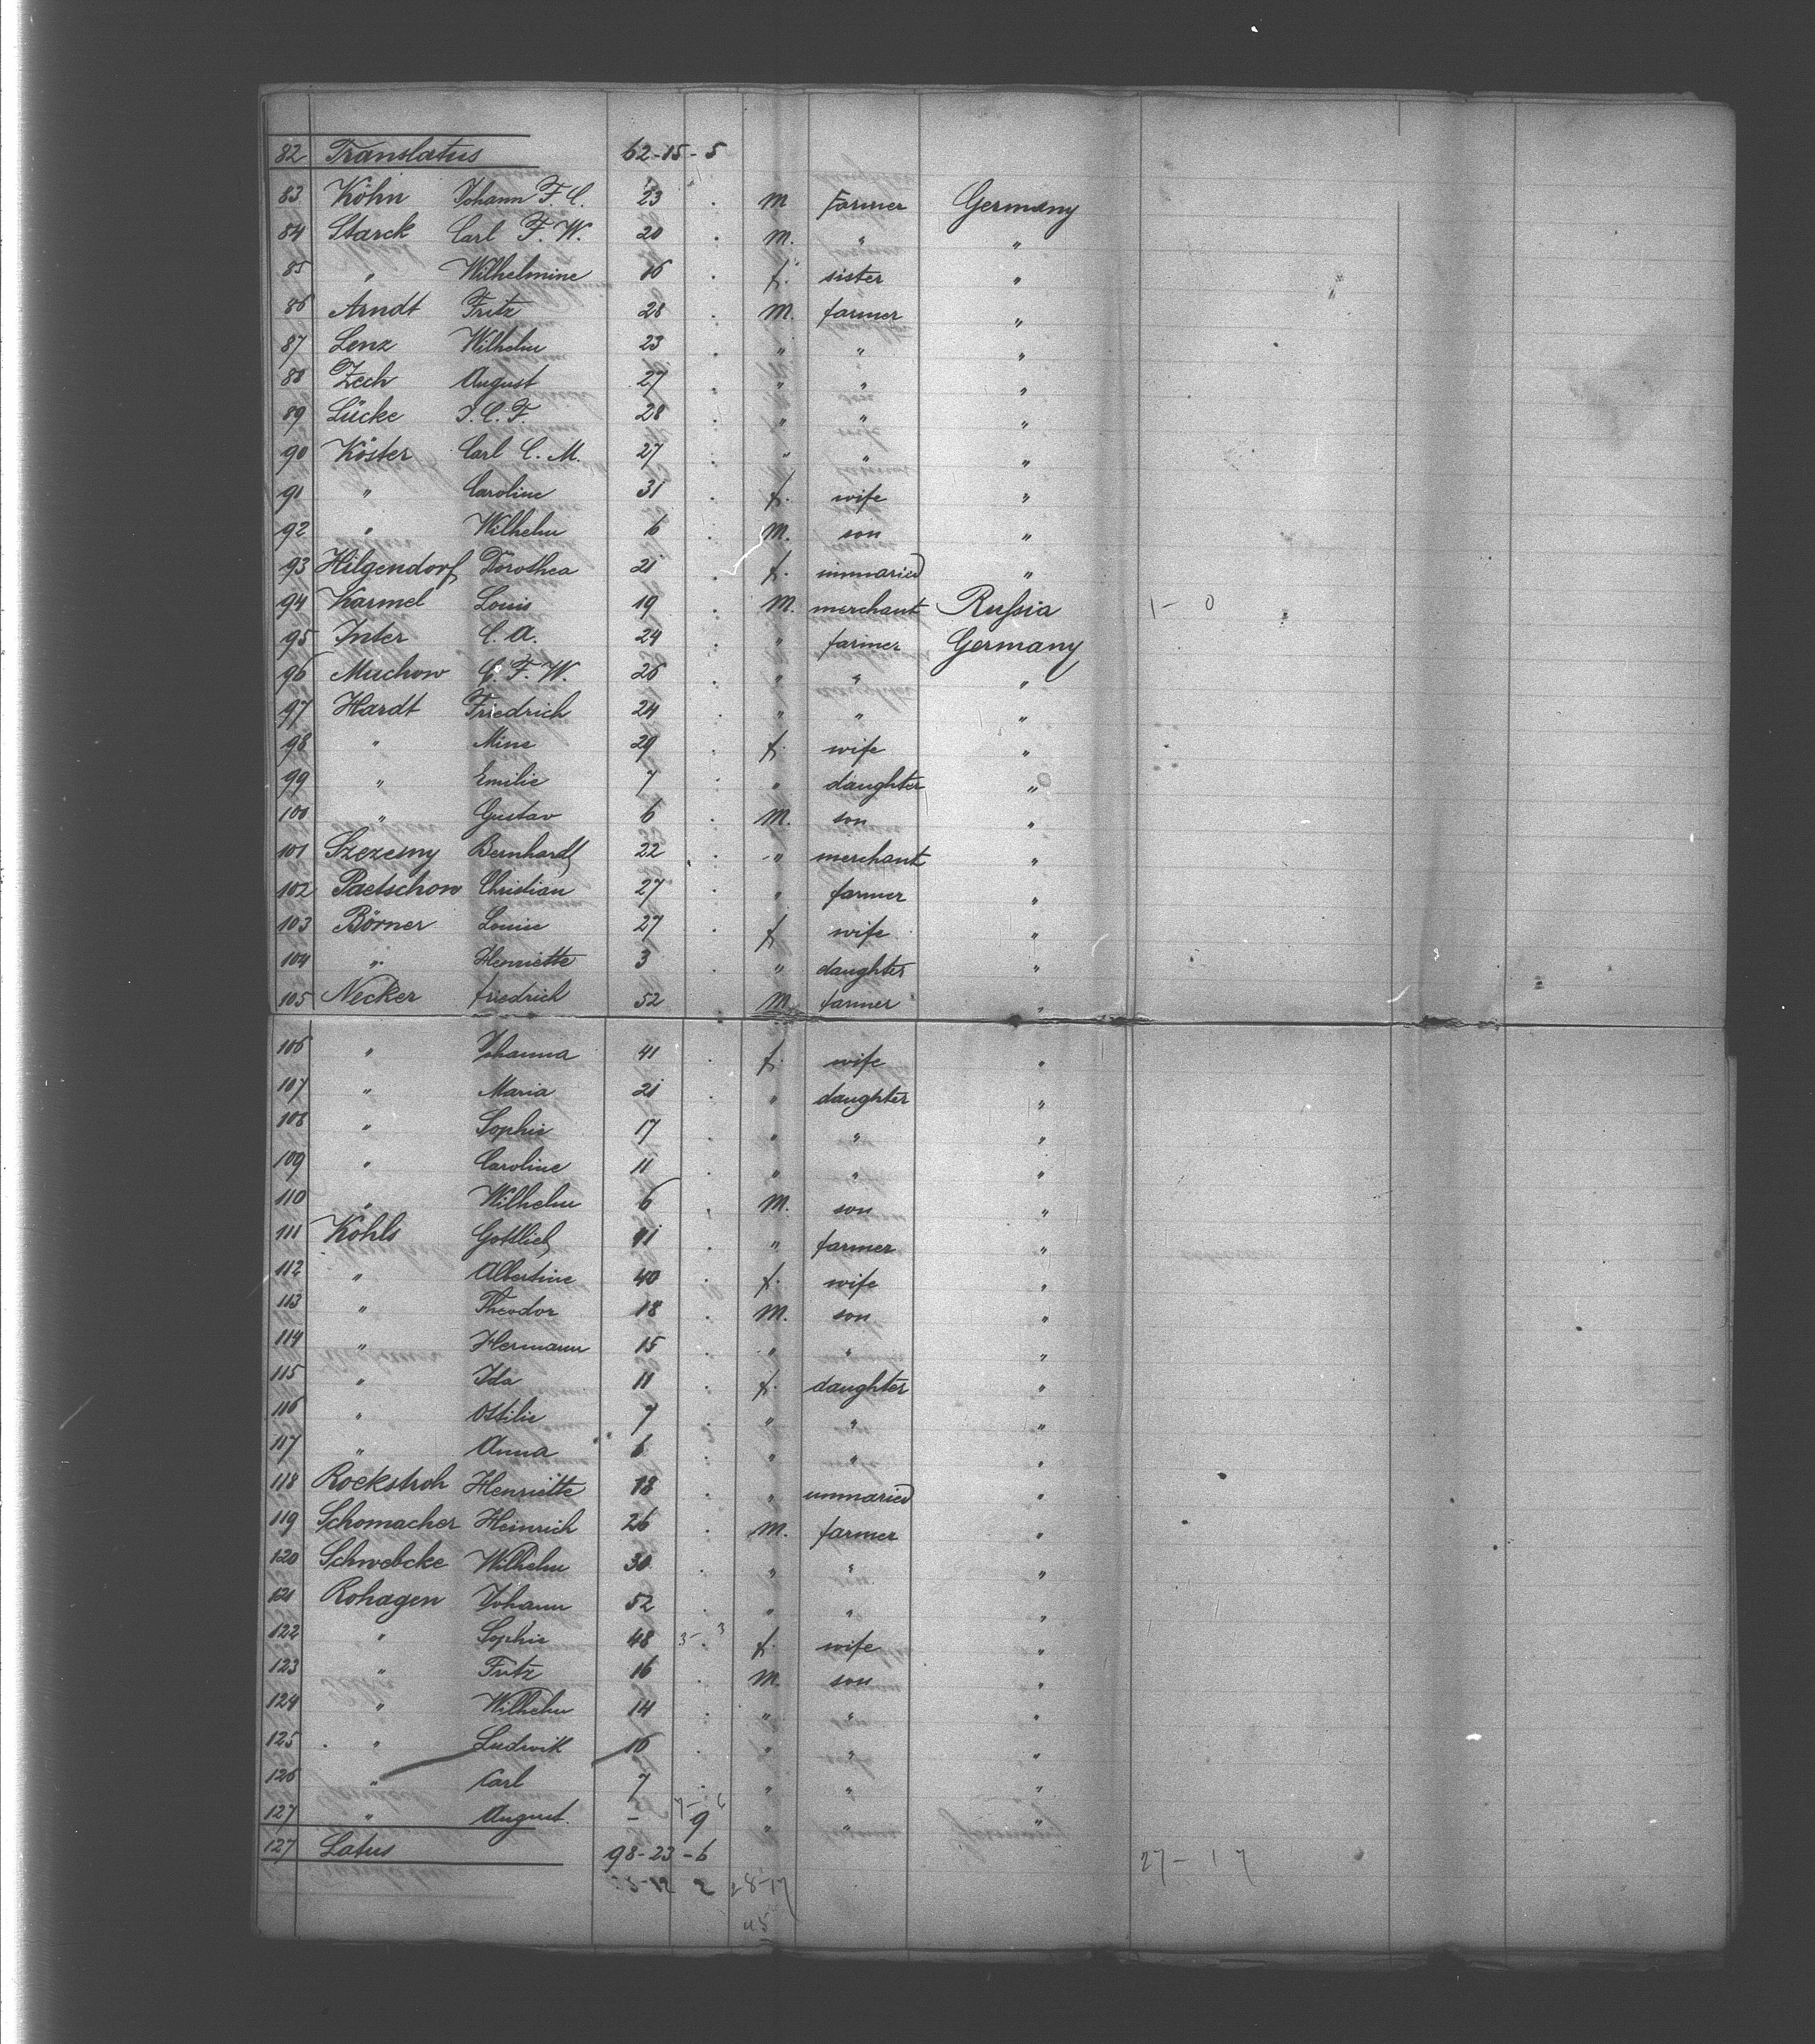 82 Translatus 62-15-5
83 Köhn Johann F. C. 23 . M Farmer Germany
84 Starck Carl F. W. 20 . M. " "
85 " Wilhelmine 16 . f. sister "
86 Arndt Fritz 28 . M. farmer "
87 Lenz Wilhelm 23 . " " "
88 Zech August 27 . " " "
89 Lücke J. C. F. 28 . " " "
90 Köster Carl C. M. 27 . " " "
91 " Caroline 31 . f. wife "
92 " Wilhelm 6 . M. son "
93 Hilgendorf Dorothea 21 . f. unmaried "
94 Karmel Louis 19 . M. merchant Russia 1 - 0
95 Inter C. A. 24 . " farmer Germany
96 Muchow C. F. W. 26 . " " "
97 Hardt Friedrich 24 . " " "
98 " Mine 29 . f. wife "
99 " Emilie 7 . " daughter "
100 " Gustav 6 . M. son "
101 Szezesny Bernhard 22 . " merchant "
102 Paetschow Christian 27 . " farmer "
103 Börner Louise 27 . f wife "
104 " Henriette 3 . " daughter "
105 Necker friedrich 52 . M farmer "
106 " Johanna 41 . f. wife "
107 " Maria 21 . " daughter "
108 " Sophie 17 . " " "
109 " Caroline 11 . " " "
110 " Wilhelm 6 . M. son "
111 Kohls Gottlieb 41 . " farmer "
112 " Albertine 40 . f. wife "
113 " Theodor 18 . M. son "
114 " Hermann 15 . " " "
115 " Ida 11 . f. daughter "
116 " Ottilie 7 . " " "
117 " Anna 6 . " " "
118 Rockstroh Henriette 18 . " unmaried "
119 Schomacher Heinrich 26 . M. farmer "
120 Schwebcke Wilhelm 30 . " " "
121 Rohagen Johann 52 . " " "
122 " Sophie 48 3-3 f. wife "
123 " Fritz 16 . M. son "
124 " Wilhelm 14 . " " "
125 " Ludwik 10 . " " "
126 " Carl 7 . " " "
127 " August. - 9 " " "
127 Latus 98-23-6
27 - 17
28-17
45